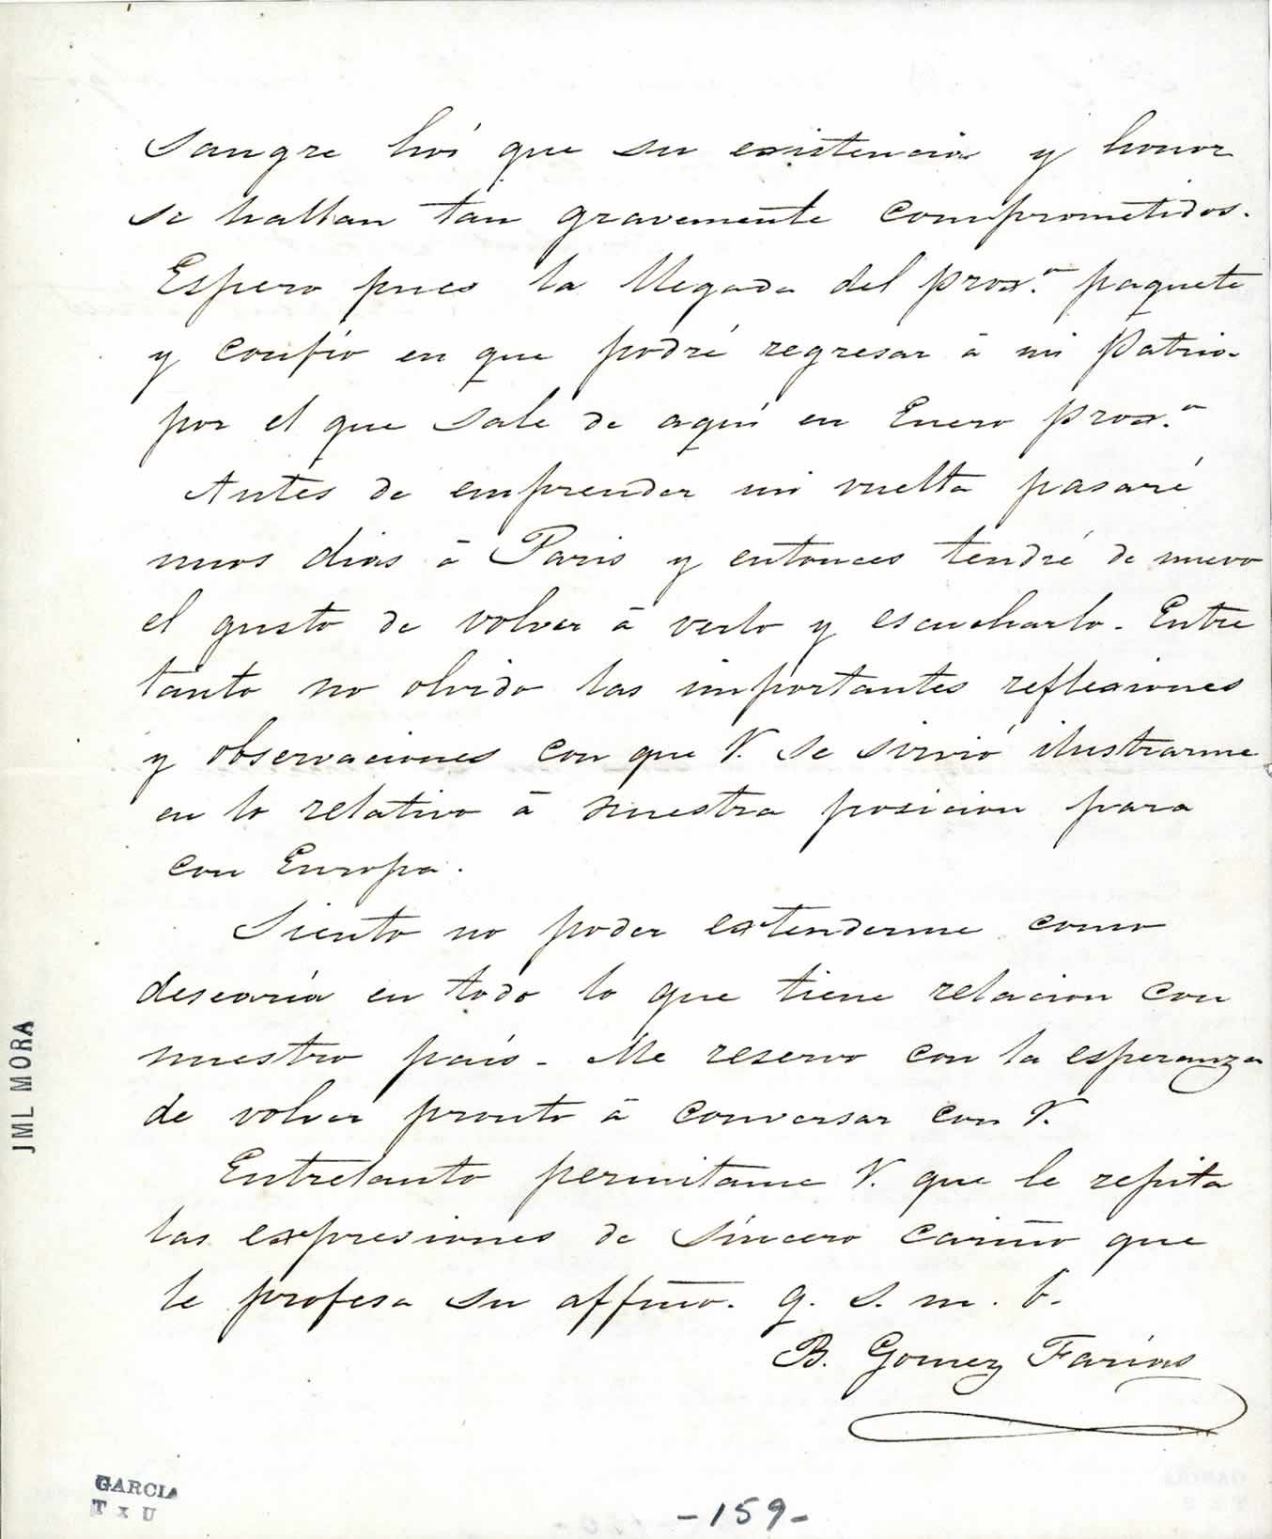 sangre hoi que su existencia y honor
se hallan tan gravemente comprometidos.
Espero pues la llegada del proxº paquete
y confio en que podré regresar á mi Patria
por el que sale de aquí en Enero proxº
Antes de emprender mi vuelta pasaré
unos dias á Paris y entonces tendré de nuevo
el gusto de volver á verlo y escucharlo. Entre
tanto no olvido las importantes reflexiones
y observaciones con que V. se sirvió ilustrarme
en lo relativo á nuestra posicion para
con Europa.
Siento no poder extenderme como
desearía en todo lo que tiene relacion con
nuestro país. Me reservo con la esperanza
de volver pronto á conversar con V.
Entretanto permitame V. que le repita
las expresiones de sincero cariño que
le profesa su affmo. q. s. m. b.
B. Gomez Farías
JML MORA
GARCIA
T x U
-159-